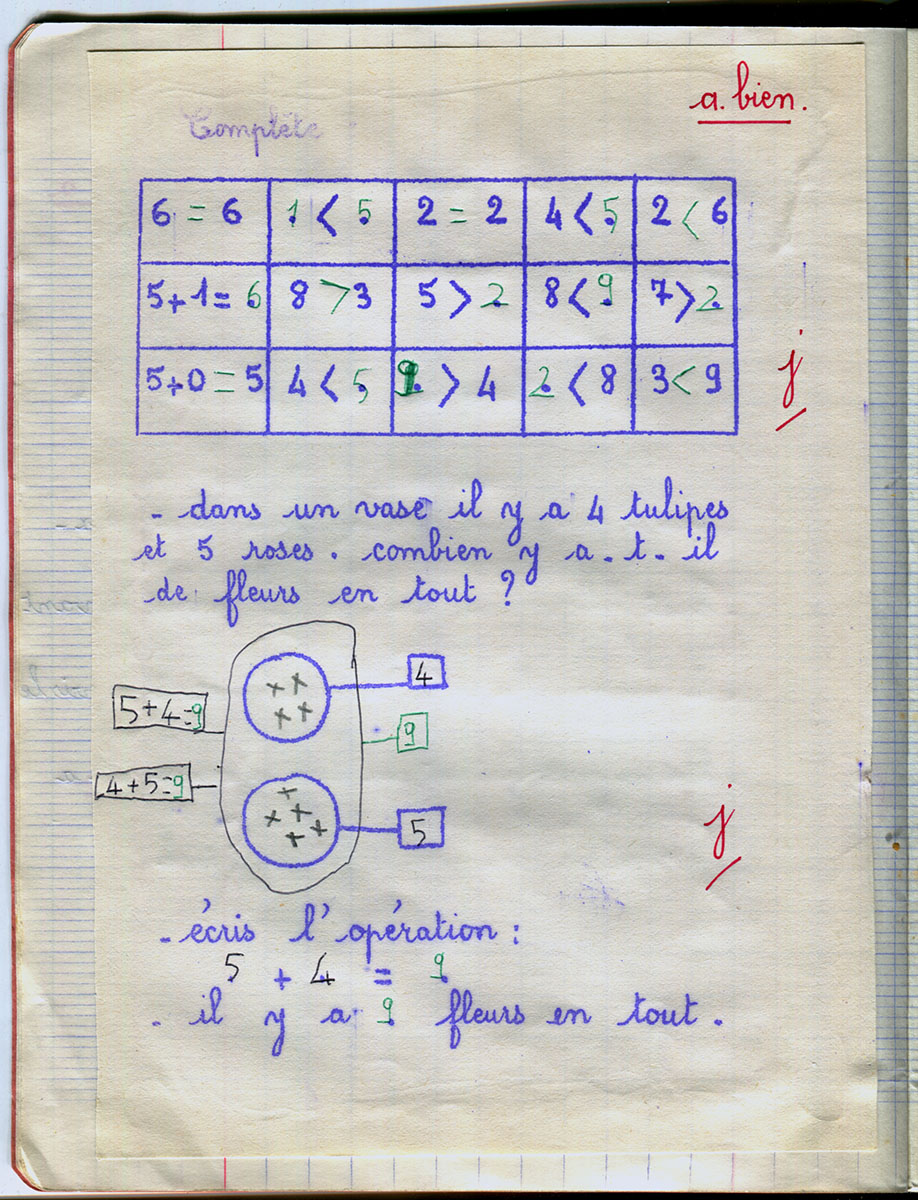 a. bien.
Complète
6 = 6 1 < 5 2 = 2 4 < 5 2 < 6
5+1=6 8 > 3 5 > 2 8 < 9 7 > 2
5+0=5 4 < 5 9 > 4 2 < 8 3 < 9
j
- dans un vase il y a 4 tulipes
et 5 roses. combien y a-t-il
de fleurs en tout ?
4
5+4=9
9
4+5=9
5
j
- écris l'opération :
5 + 4 = 9
- il y a 9 fleurs en tout.